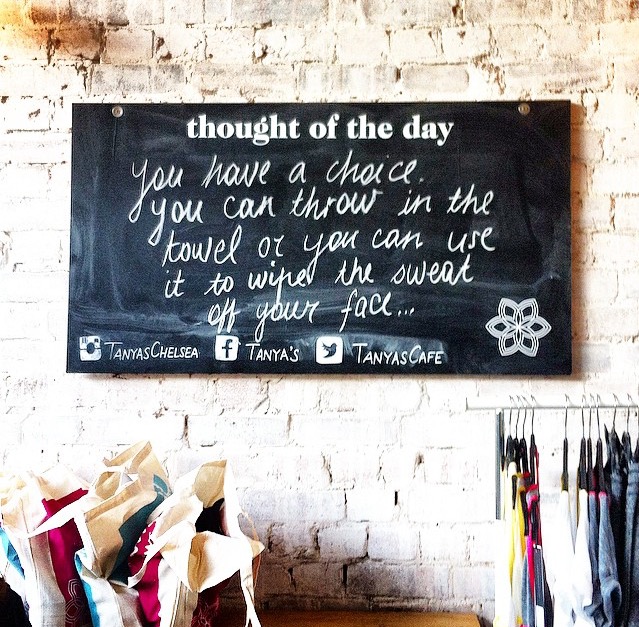 thought of the day
you have a choice.
you can throw in the
towel or you can use
it to wipe the sweat
off your face...
TANYASCHELSEA f TANYA'S TANYASCAFE